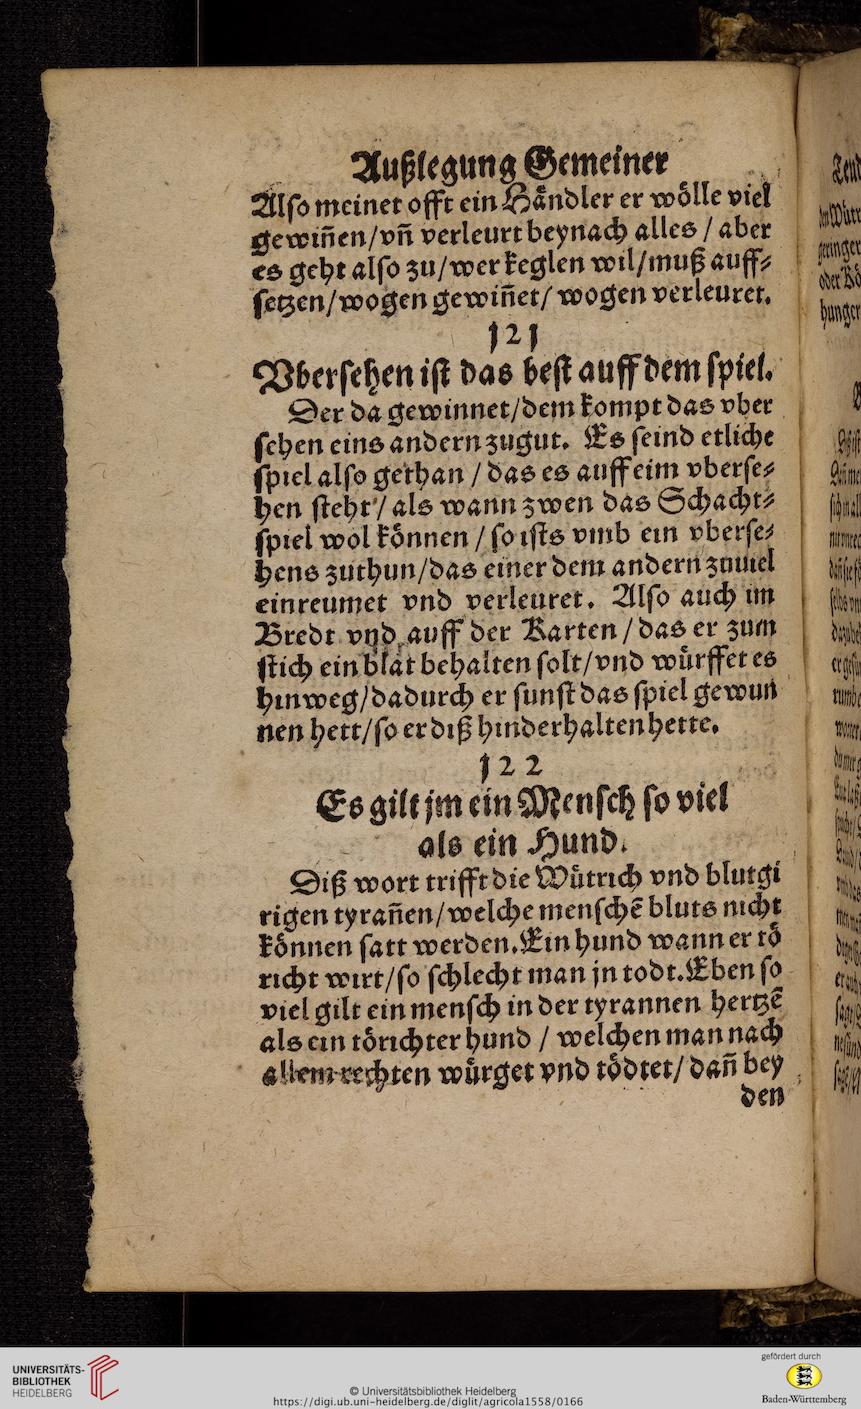 Außlegung Gemeiner
Also meinet offt ein Händler er wölle viel
gewiñen/vñ verleurt beynach alles / aber
es geht also zu/wer keglen wil/muß auff⸗
setzen/wogen gewiñet/ wogen verleuret.
121
Vbersehen ist das best auff dem spiel.
Der da gewinnet/dem kompt das vber
sehen eins andern zugut. Es seind etliche
spiel also gethan / das es auff eim vberse⸗
hen steht / als wann zwen das Schacht⸗
spiel wol können / so ists vmb ein vberse⸗
hens zuthun/das einer dem andern zuuiel
einreumet vnd verleuret. Also auch im
Bredt vnd auff der Karten / das er zum
stich ein blat behalten solt/vnd würffet es
hinweg/dadurch er sunst das spiel gewun
nen hett/so er diß hinderhalten hette.
122
Es gilt jm ein Mensch so viel
als ein Hund.
Diß wort trifft die Wütrich vnd blutgi
rigen tyrañen/welche menschẽ bluts nicht
können satt werden. Ein hund wann er tö
richt wirt/so schlecht man jn todt. Eben so
viel gilt ein mensch in der tyrannen hertzẽ
als ein törichter hund / welchen man nach
allem rechten würget vnd tödtet/ dañ bey
den
UNIVERSITÄTS-
BIBLIOTHEK
HEIDELBERG
© Universitätsbibliothek Heidelberg
https://digi.ub.uni-heidelberg.de/diglit/agricola1558/0166
gefördert durch
Baden-Württemberg